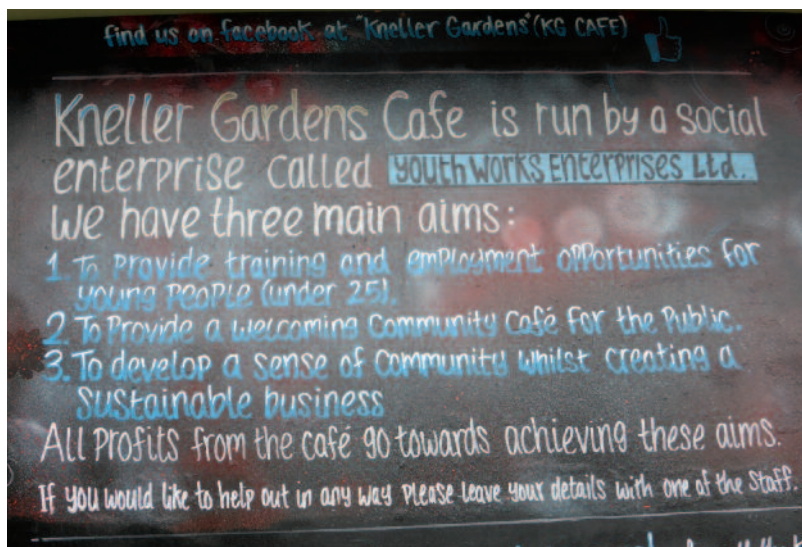 find us on facebook at "Kneller Gardens" (KG CAFE)
Kneller Gardens Cafe is run by a social
enterprise called Youth Works Enterprises Ltd.
We have three main aims:
1. To Provide training and employment opportunities for
young people (under 25).
2. To Provide a welcoming Community Café for the Public.
3. To develop a sense of Community whilst creating a
Sustainable business
All Profits from the café go towards achieving these aims.
If you would like to help out in any way Please leave your details with one of the Staff.